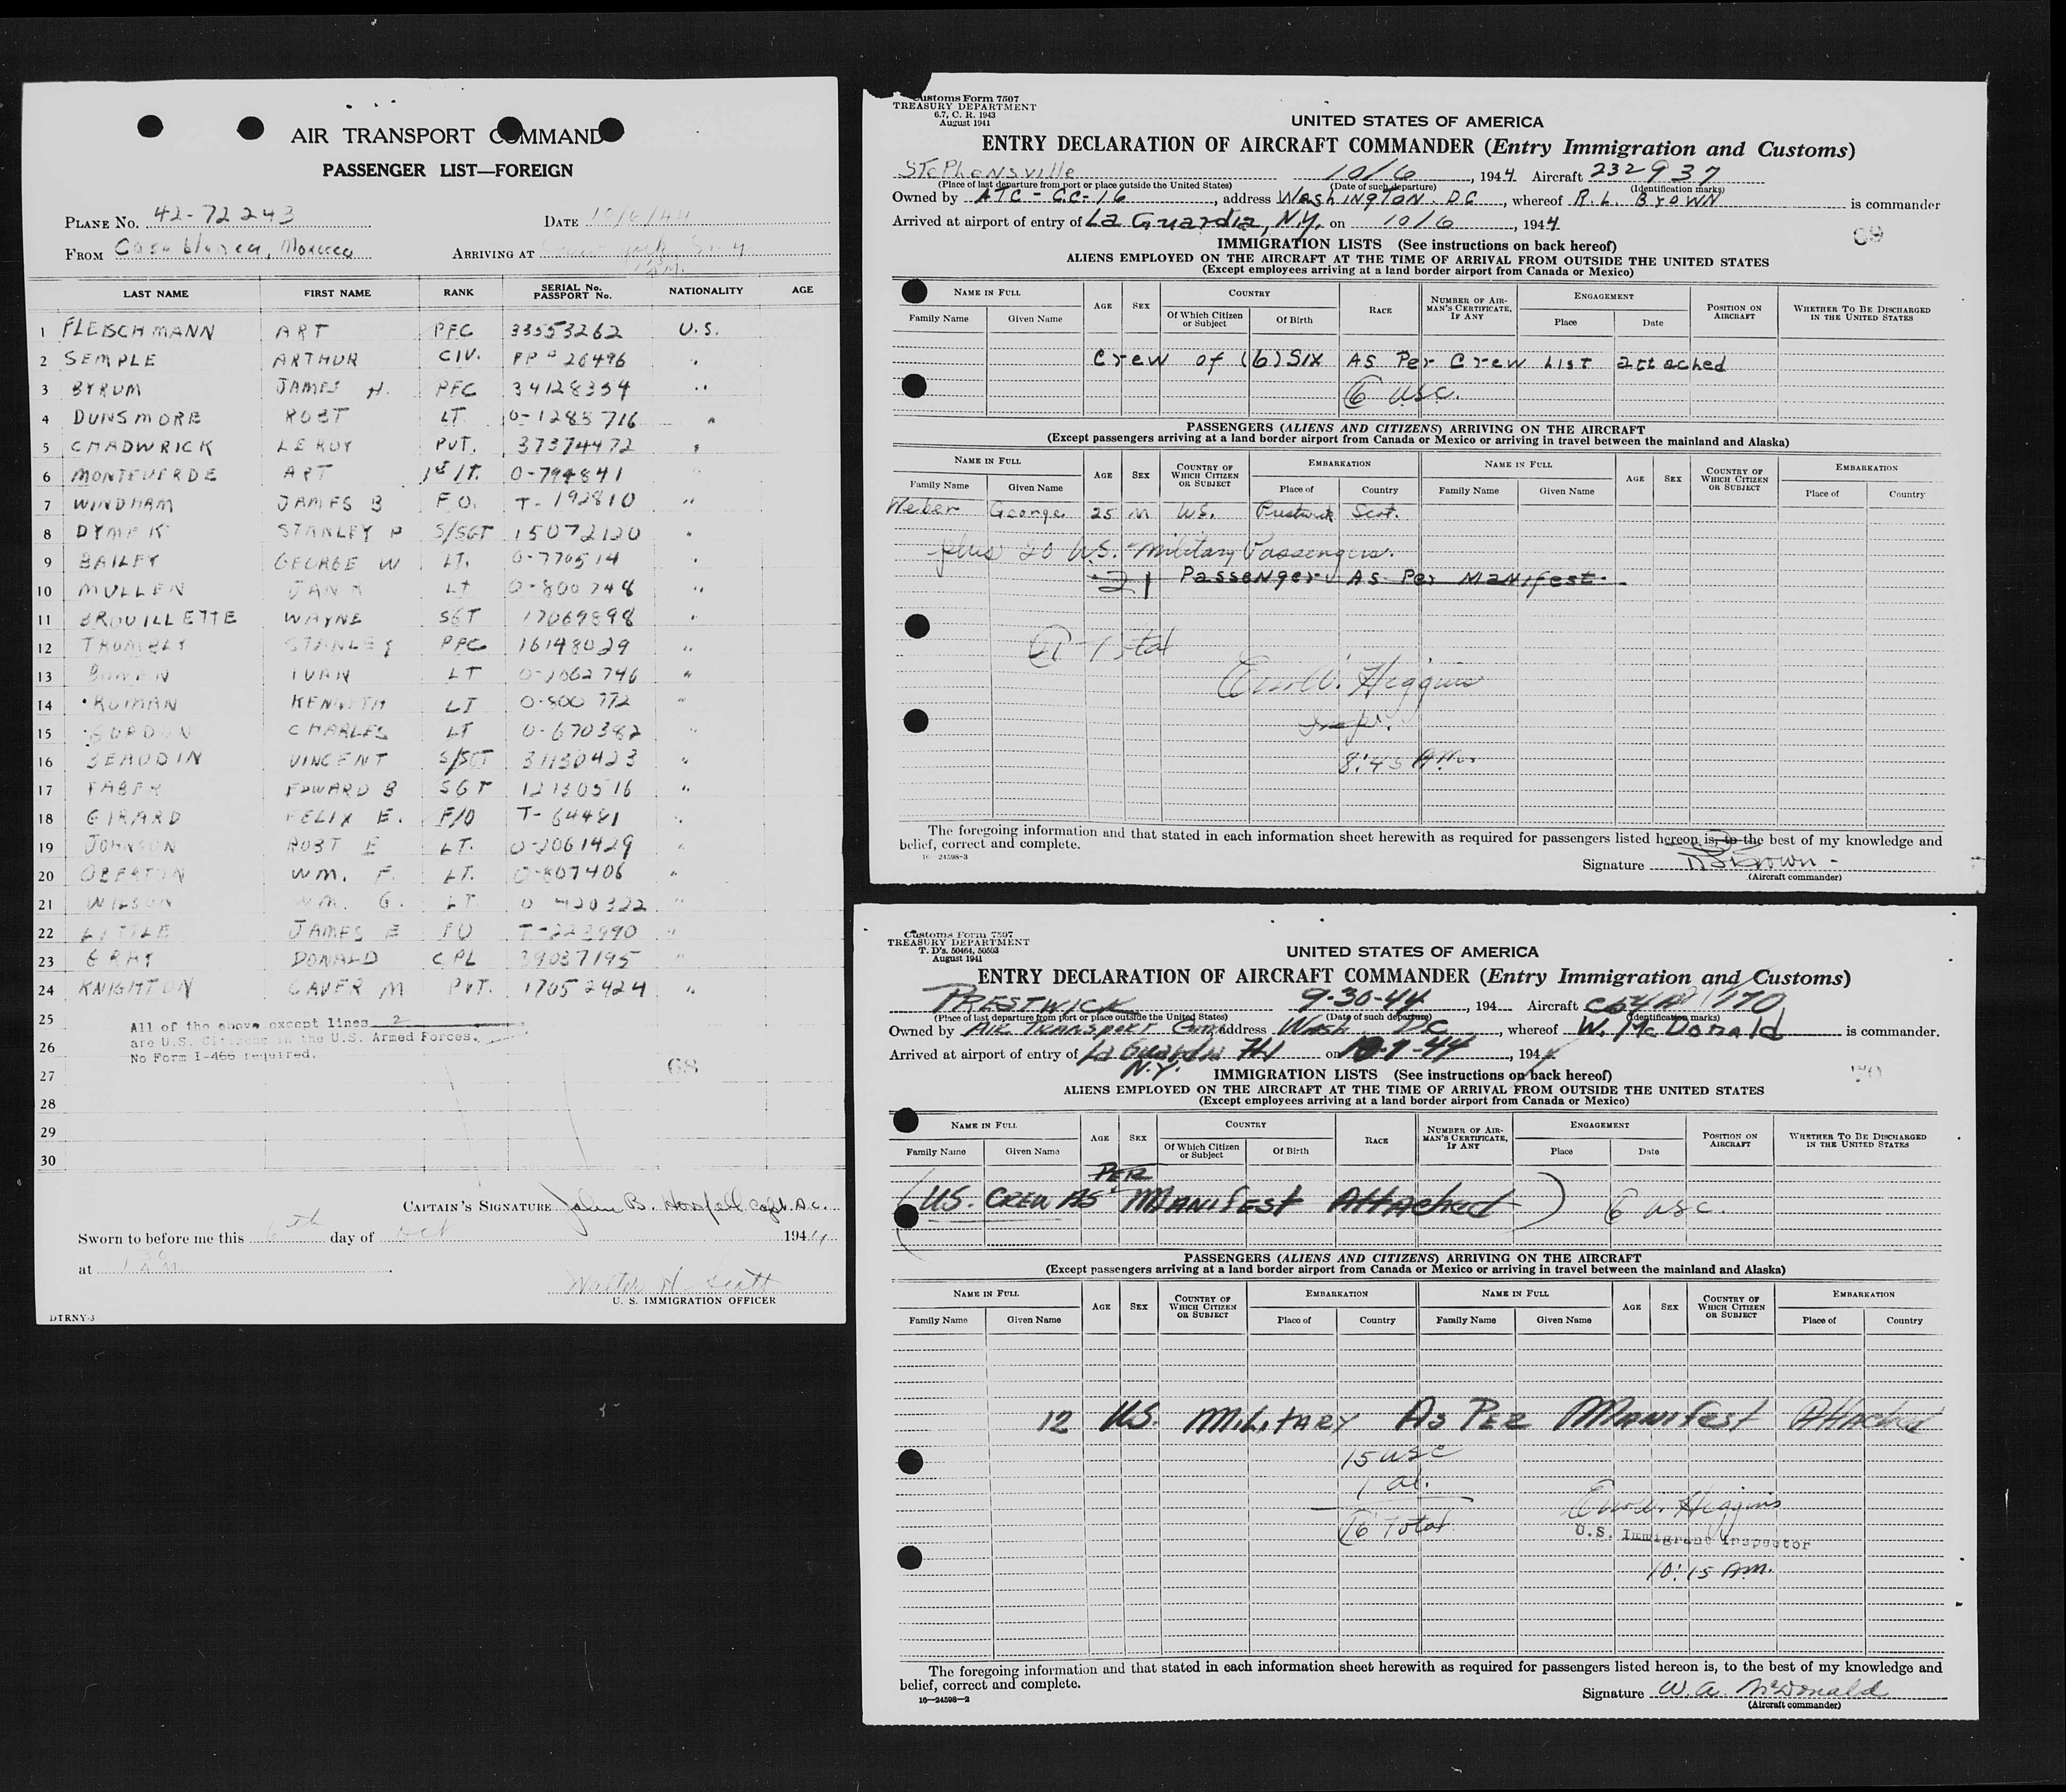 AIR TRANSPORT COMMAND
PASSENGER LIST—FOREIGN
PLANE No. 42-72243 DATE 10/6/44
FROM Casablanca, Morocco ARRIVING AT
LAST NAME FIRST NAME RANK SERIAL No. PASSPORT No. NATIONALITY AGE
1 FLEISCHMANN ART PFC 33553262 U.S.
2 SEMPLE ARTHUR CIV. PP # 26496 "
3 BYRUM JAMES H. PFC 34128354 "
4 DUNSMORE ROBT LT 0-1285716 "
5 CHADWRICK LEROY PVT. 37374472 "
6 MONTEVERDE ART 1st LT. 0-794841 "
7 WINDHAM JAMES B F.O. T-192810 "
8 DYMEK STANLEY P S/SGT 15072120 "
9 BAILEY GEORGE W LT. 0-770514 "
10 MULLEN LT 0-800748 "
11 BROUILLETTE WAYNE SGT 17069898 "
12 STANLEY PFC 16148029 "
13 BOWEN IVAN LT 0-2062746 "
14 ROMAN KENNITH LT 0-800772 "
15 GORDON CHARLES LT 0-670382 "
16 BEAUDIN VINCENT S/SGT 31130423 "
17 FABER EDWARD B SGT 12130516 "
18 GIRARD FELIX E. F/O T-64481 "
19 JOHNSON ROBT E LT. 0-2061429 "
20 OBERTON WM. F. LT. 0-807406 "
21 WILSON WM. G. LT 0-420322 "
22 LITTLE JAMES E FO T-223990 "
23 GRAY DONALD CPL 39037195 "
24 KNIGHTON CAVER M PVT. 17052424 "
25
26
27
28
29
30
All of the above except lines 2
are U.S. Citizens in the U.S. Armed Forces.
No Form I-466 required.
68
CAPTAIN'S SIGNATURE John B. Capt. A.C.
Sworn to before me this 6th day of Oct 1944
at
Walter H. Scott
U. S. IMMIGRATION OFFICER
DTRNY-3
Customs Form 7507
TREASURY DEPARTMENT
6.7, C. R. 1943
August 1941
UNITED STATES OF AMERICA
ENTRY DECLARATION OF AIRCRAFT COMMANDER (Entry Immigration and Customs)
Stephensville 10/6, 1944 Aircraft 232937
(Place of last departure from port or place outside the United States) (Date of such departure) (Identification marks)
Owned by ATC-CC-16, address Washington. DC, whereof R.L. Brown is commander
Arrived at airport of entry of La Guardia, N.Y. on 10/6, 1944
69
IMMIGRATION LISTS (See instructions on back hereof)
ALIENS EMPLOYED ON THE AIRCRAFT AT THE TIME OF ARRIVAL FROM OUTSIDE THE UNITED STATES
(Except employees arriving at a land border airport from Canada or Mexico)
NAME IN FULL AGE SEX COUNTRY RACE NUMBER OF AIRMAN'S CERTIFICATE, IF ANY ENGAGEMENT POSITION ON AIRCRAFT WHETHER TO BE DISCHARGED IN THE UNITED STATES
Family Name Given Name Of Which Citizen or Subject Of Birth Place Date
Crew of (6) Six As Per Crew List attached
6 USC.
PASSENGERS (ALIENS AND CITIZENS) ARRIVING ON THE AIRCRAFT
(Except passengers arriving at a land border airport from Canada or Mexico or arriving in travel between the mainland and Alaska)
NAME IN FULL AGE SEX COUNTRY OF WHICH CITIZEN OR SUBJECT EMBARKATION NAME IN FULL AGE SEX COUNTRY OF WHICH CITIZEN OR SUBJECT EMBARKATION
Family Name Given Name Place of Country Family Name Given Name Place of Country
Weber George 25 M US. Prestwick Scot.
plus 20 U.S. Military Passengers.
21 Passengers As Per Manifest.
21 Total
Higgins
Inspr.
8:45 AM.
The foregoing information and that stated in each information sheet herewith as required for passengers listed hereon is, to the best of my knowledge and
belief, correct and complete.
16—24598-3
Signature R L Brown
(Aircraft commander)
Customs Form 7507
TREASURY DEPARTMENT
T. D's. 50464, 50503
August 1941
UNITED STATES OF AMERICA
ENTRY DECLARATION OF AIRCRAFT COMMANDER (Entry Immigration and Customs)
PRESTWICK 9-30-44, 194 Aircraft
(Place of last departure from port or place outside the United States) (Date of such departure) (Identification marks)
Owned by AIR TRANSPORT Comd, address Wash. DC, whereof W. McDonald is commander.
Arrived at airport of entry of La Guardia Fld N.Y. on 10-1-44, 194
70
IMMIGRATION LISTS (See instructions on back hereof)
ALIENS EMPLOYED ON THE AIRCRAFT AT THE TIME OF ARRIVAL FROM OUTSIDE THE UNITED STATES
(Except employees arriving at a land border airport from Canada or Mexico)
NAME IN FULL AGE SEX COUNTRY RACE NUMBER OF AIRMAN'S CERTIFICATE, IF ANY ENGAGEMENT POSITION ON AIRCRAFT WHETHER TO BE DISCHARGED IN THE UNITED STATES
Family Name Given Name Of Which Citizen or Subject Of Birth Place Date
US. CREW AS PER MANIFEST ATTAched 6 USC.
PASSENGERS (ALIENS AND CITIZENS) ARRIVING ON THE AIRCRAFT
(Except passengers arriving at a land border airport from Canada or Mexico or arriving in travel between the mainland and Alaska)
NAME IN FULL AGE SEX COUNTRY OF WHICH CITIZEN OR SUBJECT EMBARKATION NAME IN FULL AGE SEX COUNTRY OF WHICH CITIZEN OR SUBJECT EMBARKATION
Family Name Given Name Place of Country Family Name Given Name Place of Country
12 U.S. MILITARY AS PER MANIFEST ATTAched
15 USC
1 al.
16 Total
Higgins
U.S. Immigrant Inspector
10:15 AM.
The foregoing information and that stated in each information sheet herewith as required for passengers listed hereon is, to the best of my knowledge and
belief, correct and complete.
16—24598-2
Signature W. A. McDonald
(Aircraft commander)